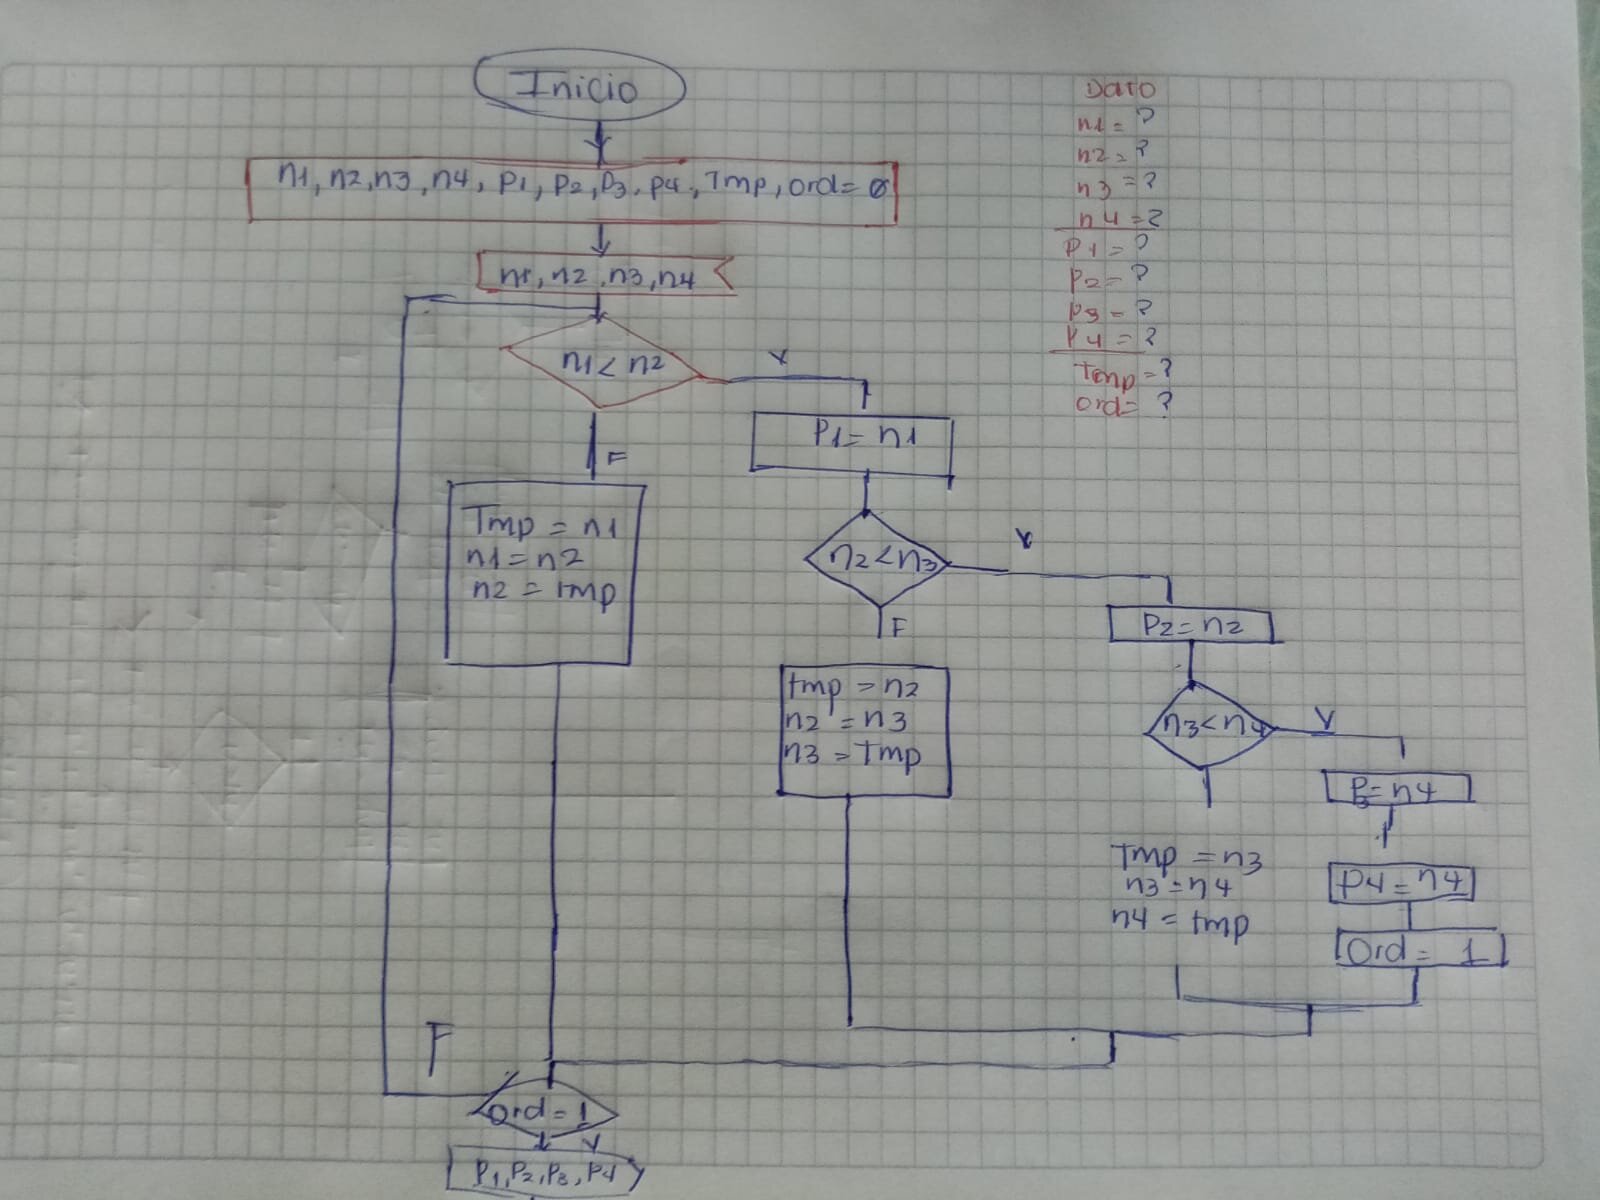 Inicio
n1, n2, n3, n4, P1, P2, P3, P4, Tmp, ord= 0
n1, n2, n3, n4
n1 < n2
V
F
P1 = n1
Tmp = n1
n1 = n2
n2 = tmp
n2 < n3
V
F
P2 = n2
tmp = n2
n2 = n3
n3 = Tmp
n3 < n4
V
P3 = n4
Tmp = n3
n3 = n4
n4 = tmp
P4 = n4
Ord = 1
F
Ord = 1
V
P1, P2, P3, P4
Dato
n1 = ?
n2 = ?
n3 = ?
n4 = ?
P1 = ?
P2 = ?
P3 = ?
P4 = ?
Tmp = ?
ord = ?